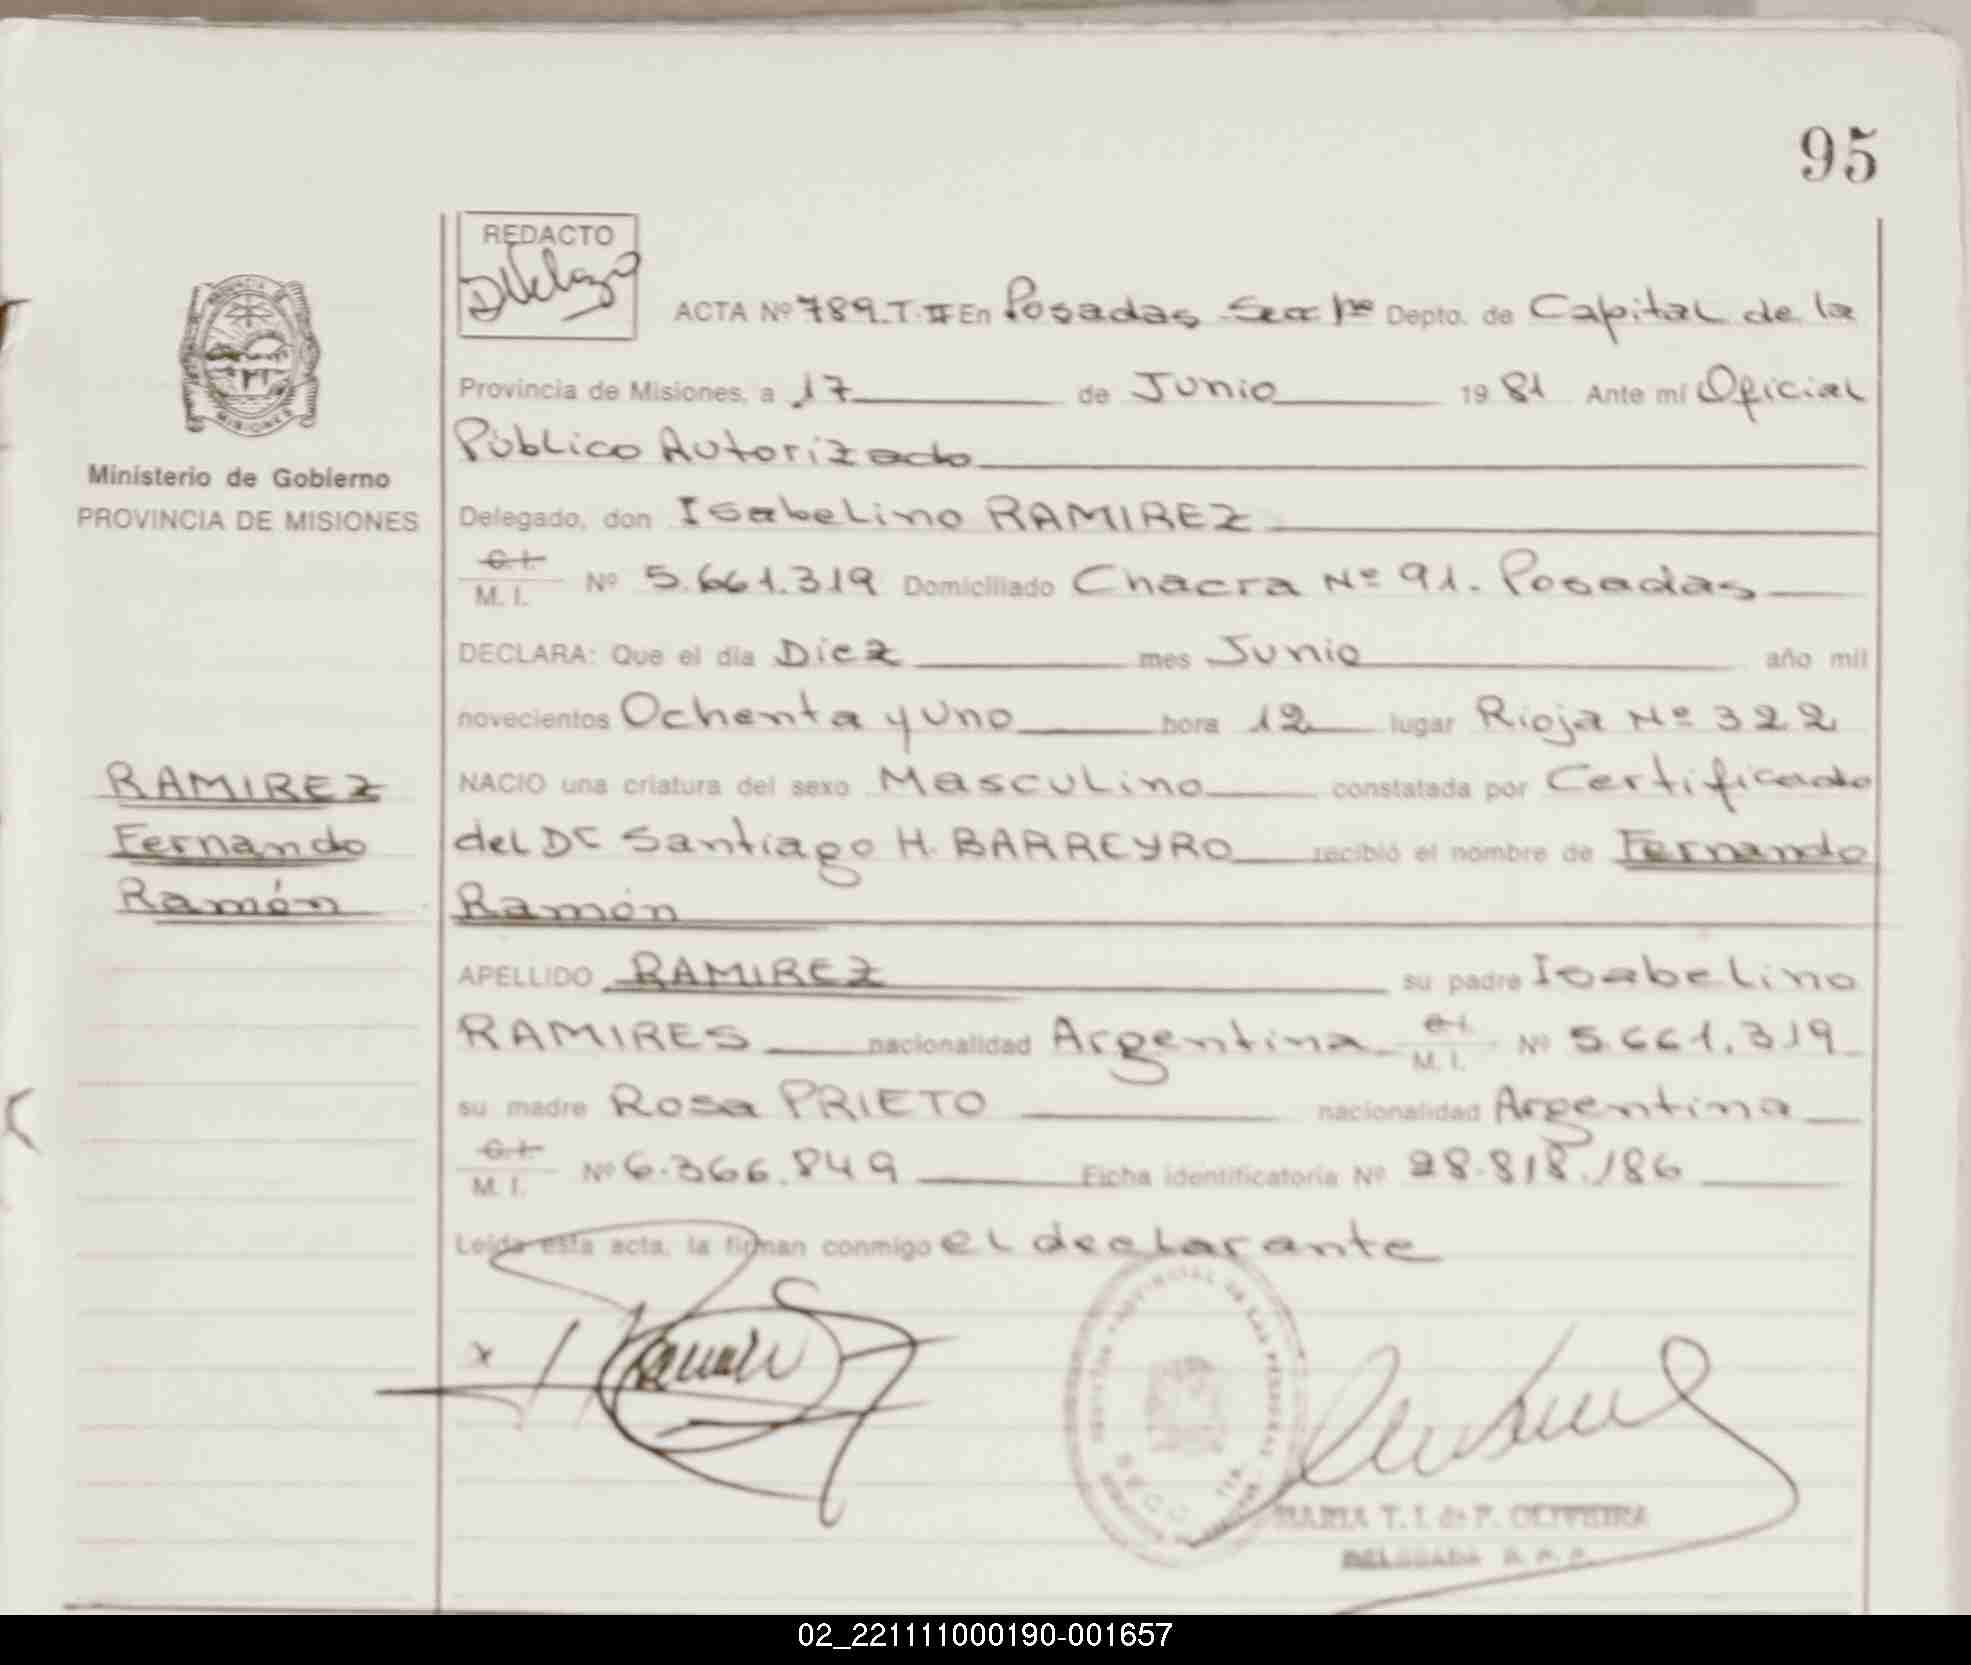 95
REDACTO
ACTA Nº 789. T. II En Posadas Secc 1ra Depto. de Capital de la
Provincia de Misiones, a 17 de Junio 19 81 Ante mí Oficial
Público Autorizado
Ministerio de Gobierno
PROVINCIA DE MISIONES
Delegado, don Isabelino RAMIREZ
C.I.
M. I. Nº 5.661.319 Domiciliado Chacra Nº 91. Posadas
DECLARA: Que el día Diez mes Junio año mil
novecientos Ochenta y Uno hora 12 lugar Rioja Nº 322
RAMIREZ
Fernando
Ramón
NACIO una criatura del sexo Masculino constatada por Certificado
del Dr Santiago H. BARREYRO recibió el nombre de Fernando
Ramón
APELLIDO RAMIREZ su padre Isabelino
RAMIRES nacionalidad Argentina C.I. M. I. Nº 5.661.319
su madre Rosa PRIETO nacionalidad Argentina
C.I.
M. I. Nº 6.366.849 Ficha identificatoria Nº 28.818.186
Leída esta acta, la firman conmigo el declarante
MARIA T. I. de P. OLIVEIRA
02_221111000190-001657